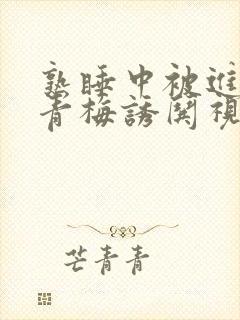 熟睡中被進
青梅誘関視
芒青青